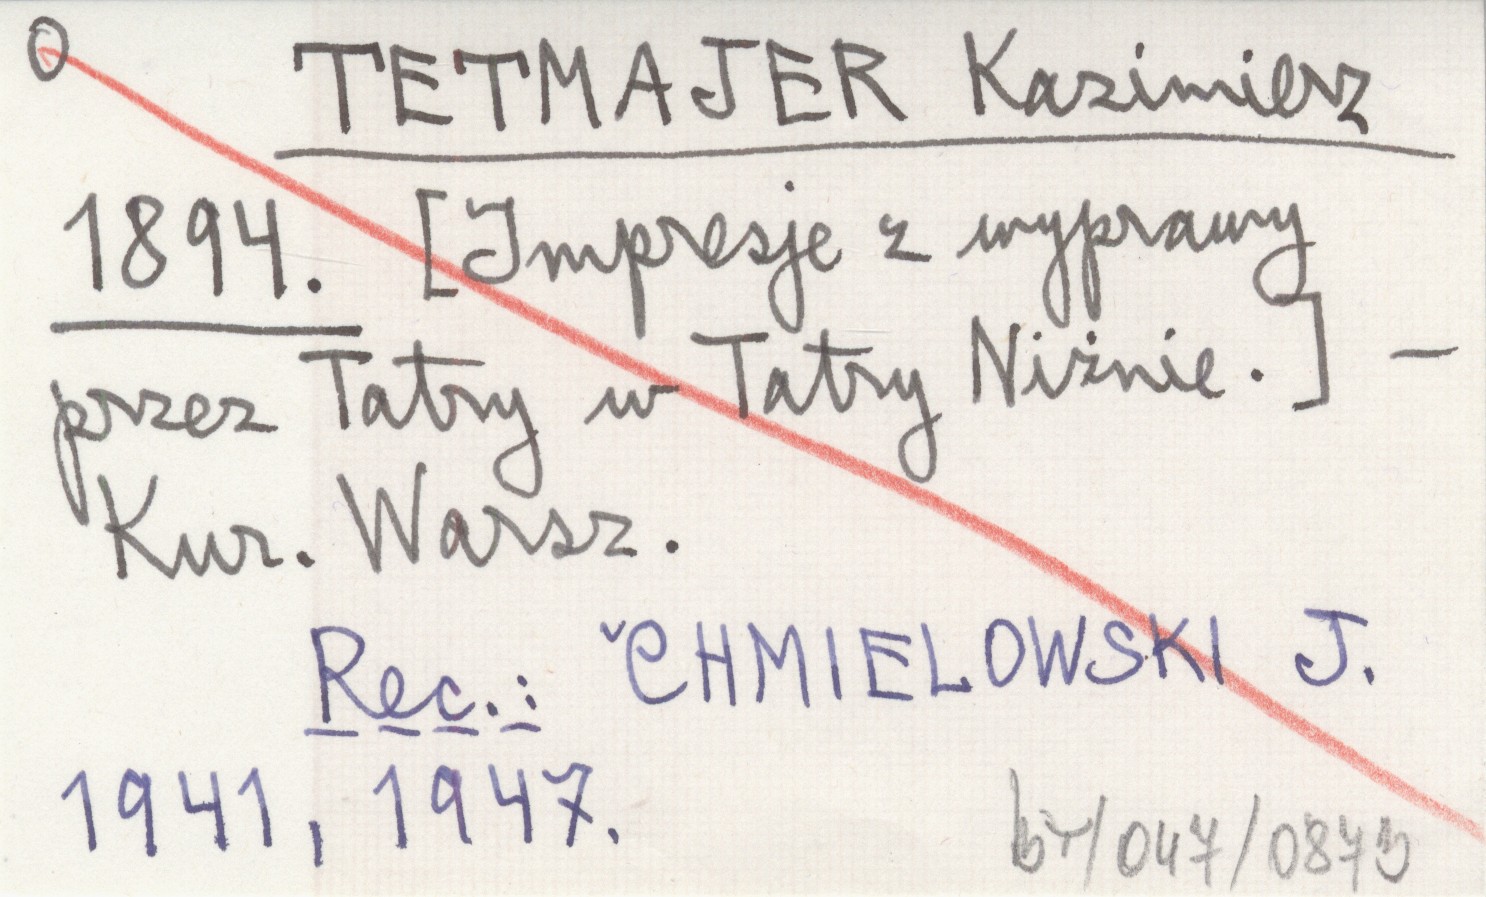 TETMAJER Kazimierz
1894. [Impresje z wyprawy
przez Tatry w Tatry Niżnie.] –
Kur. Warsz.
Rec.: ˇCHMIELOWSKI J.
1941, 1947.
br/047/0875